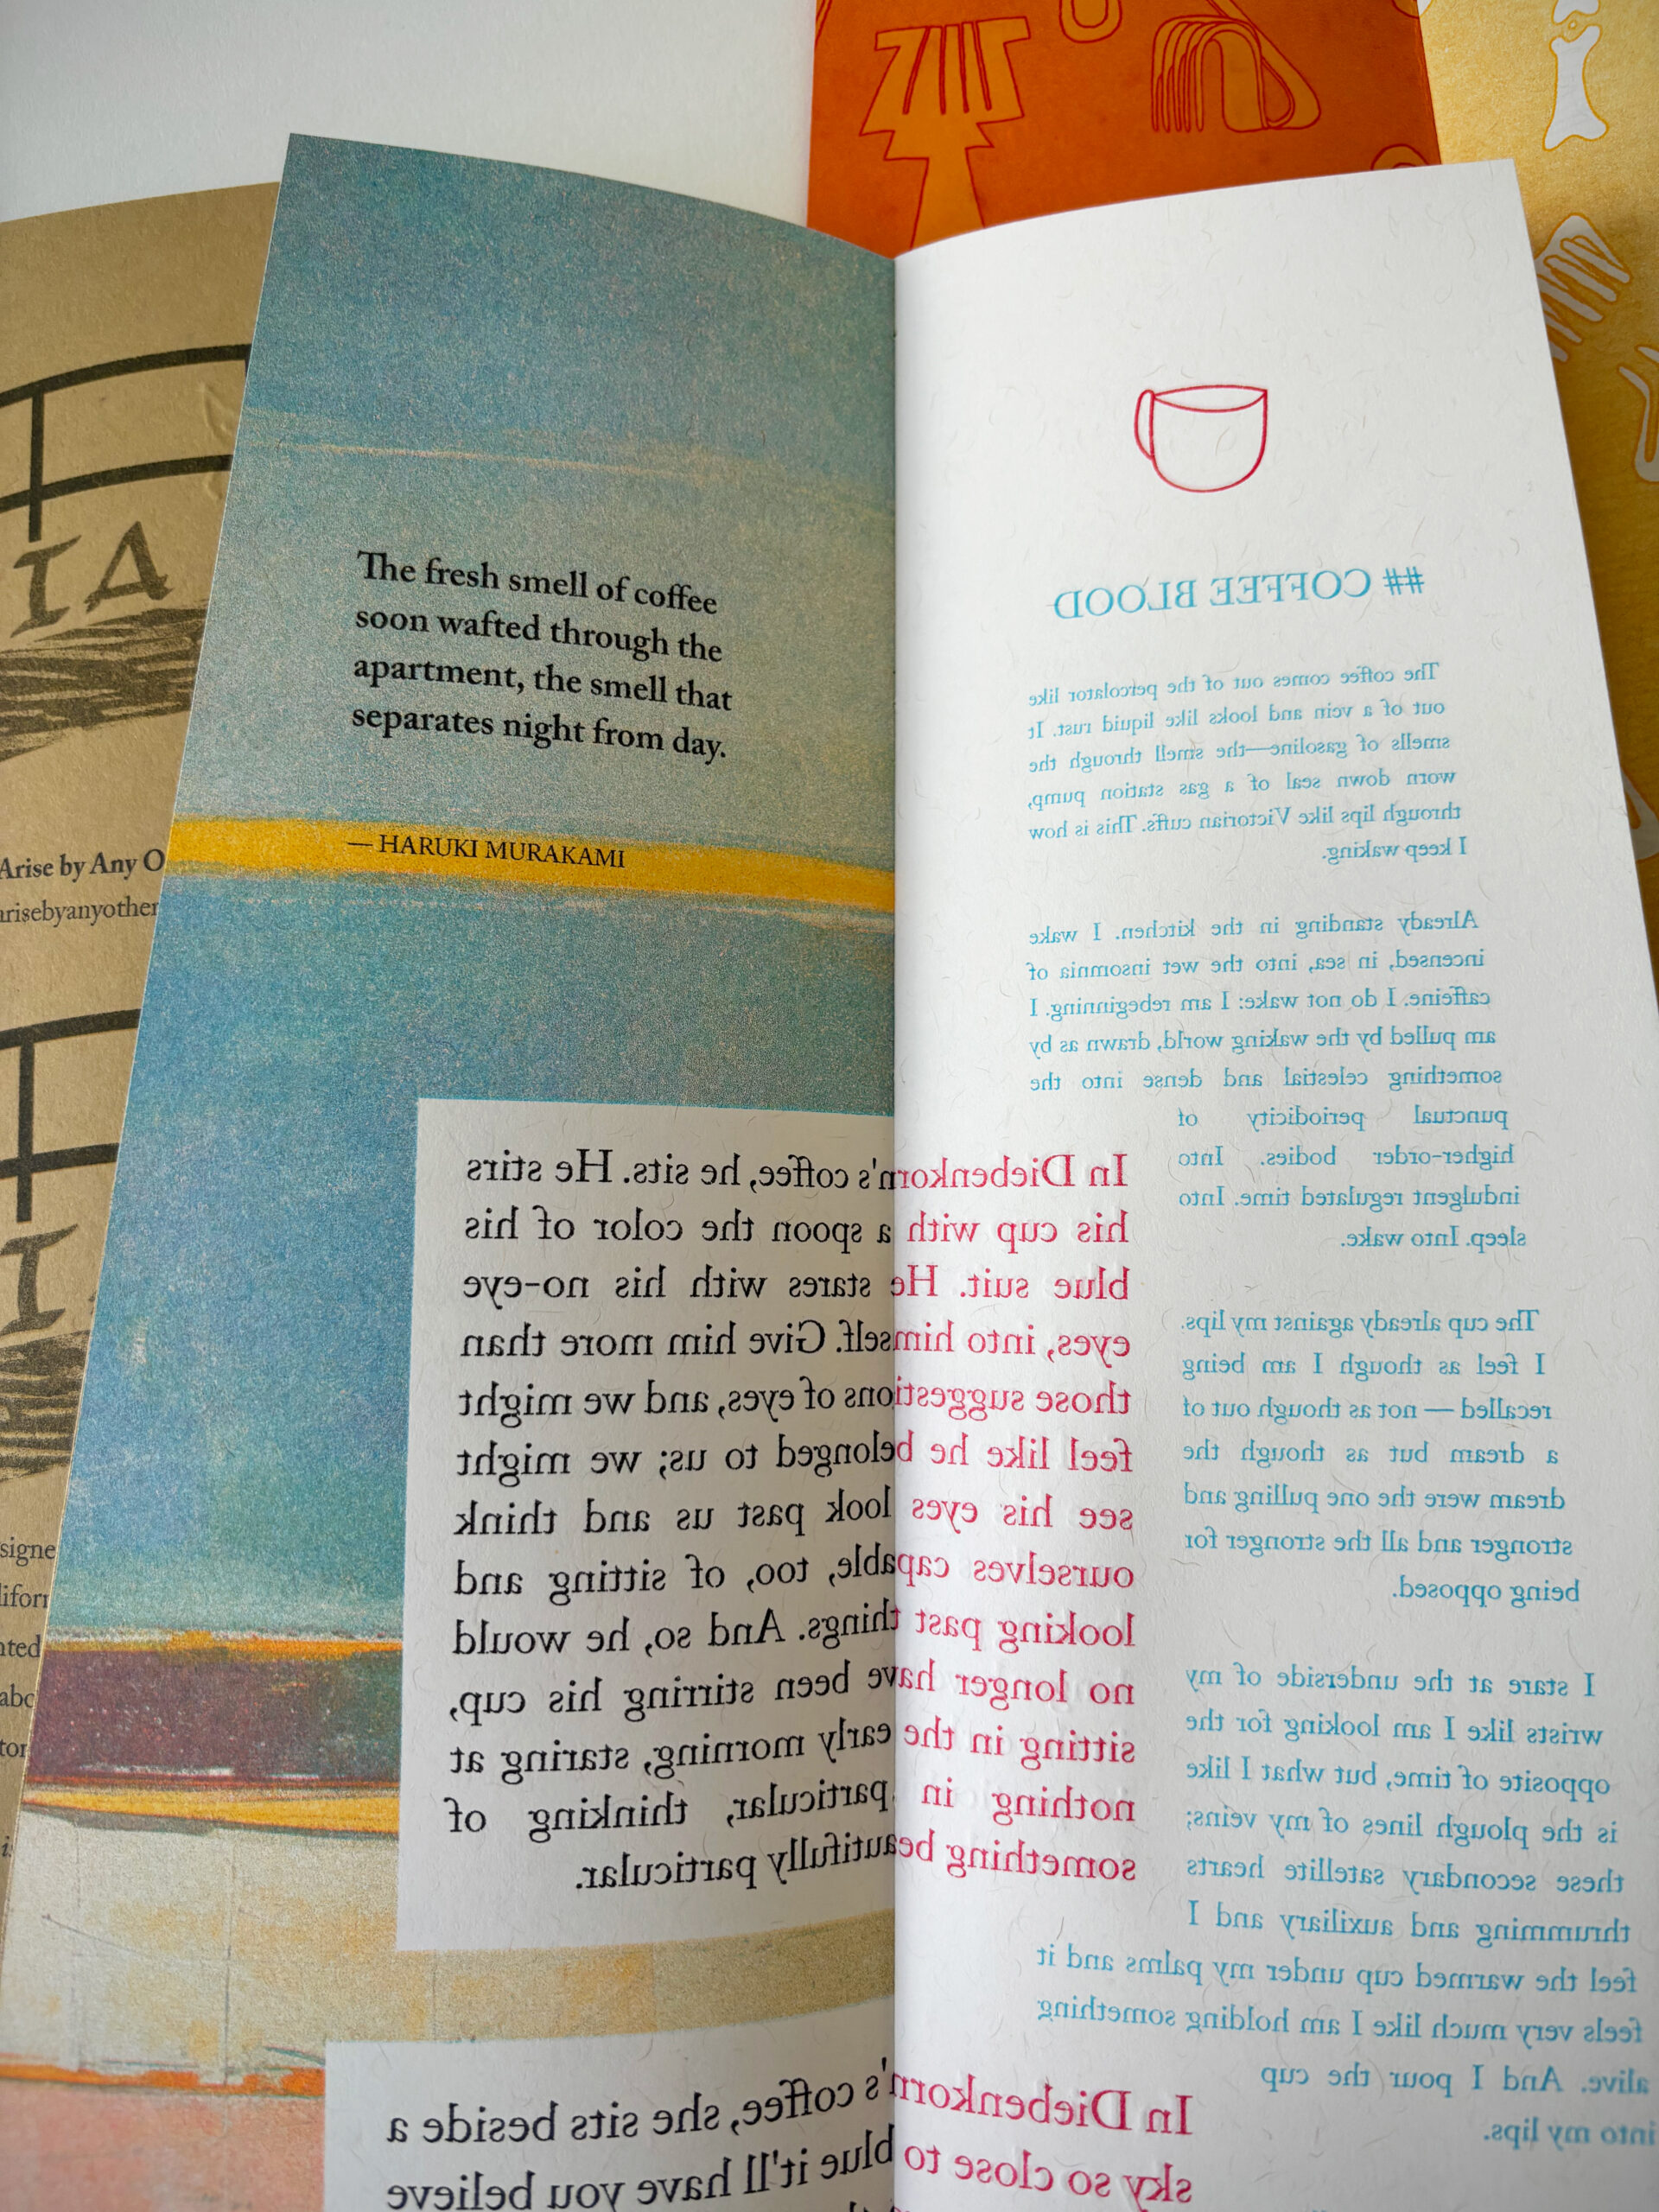 IA
Arise by Any O
arisebyanyother
I
signe
lifor
nted
abo
tor
The fresh smell of coffee
soon wafted through the
apartment, the smell that
separates night from day.
— HARUKI MURAKAMI
## COFFEE BLOOD
The coffee comes out of the percolator like
out of a vein and looks like liquid rust. It
smells of gasoline—the smell through the
worn down seal of a gas station pump,
through lips like Victorian cuffs. This is how
I keep waking.
Already standing in the kitchen. I wake
incensed, in sea, into the wet insomnia of
caffeine. I do not wake: I am rebeginning. I
am pulled by the waking world, drawn as by
something celestial and dense into the
punctual periodicity of
higher-order bodies. Into
indulgent regulated time. Into
sleep. Into wake.
The cup already against my lips.
I feel as though I am being
recalled — not as though out of
a dream but as though the
dream were the one pulling and
stronger and all the stronger for
being opposed.
I stare at the underside of my
wrists like I am looking for the
opposite of time, but what I like
is the plough lines of my veins;
these secondary satellite hearts
thrumming and auxiliary and I
feel the warmed cup under my palms and it
feels very much like I am holding something
alive. And I pour the cup
into my lips.
In Diebenkorn's coffee, he sits. He stirs
his cup with a spoon the color of his
blue suit. He stares with his no-eye
eyes, into himself. Give him more than
those suggestions of eyes, and we might
feel like he belonged to us; we might
see his eyes look past us and think
ourselves capable, too, of sitting and
looking past things. And so, he would
no longer have been stirring his cup,
sitting in the early morning, staring at
nothing in particular, thinking of
something beautifully particular.
In Diebenkorn's coffee, she sits beside a
sky so close to blue it'll have you believe